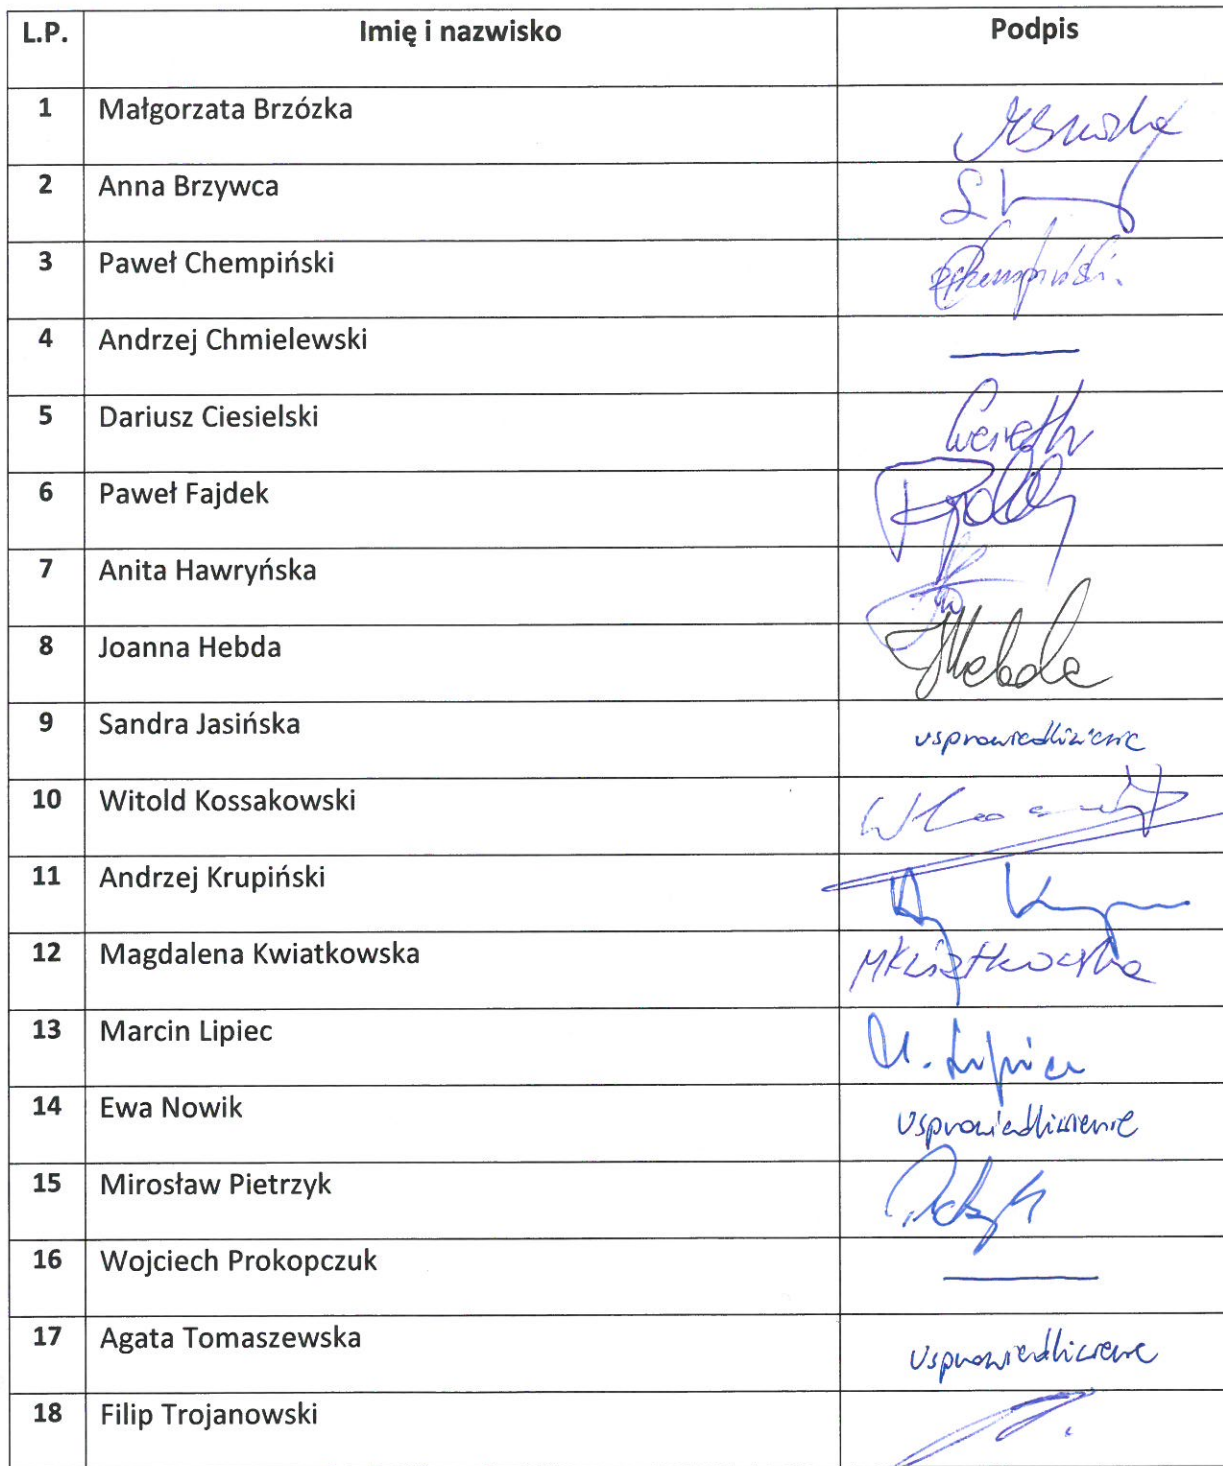 L.P. Imię i nazwisko Podpis
1 Małgorzata Brzózka
2 Anna Brzywca
3 Paweł Chempiński
4 Andrzej Chmielewski
5 Dariusz Ciesielski
6 Paweł Fajdek
7 Anita Hawryńska
8 Joanna Hebda JHebda
9 Sandra Jasińska usprawiedliwienie
10 Witold Kossakowski
11 Andrzej Krupiński
12 Magdalena Kwiatkowska MKwiatkowska
13 Marcin Lipiec M. Lipiec
14 Ewa Nowik Usprawiedliwienie
15 Mirosław Pietrzyk
16 Wojciech Prokopczuk
17 Agata Tomaszewska Usprawiedliwienie
18 Filip Trojanowski